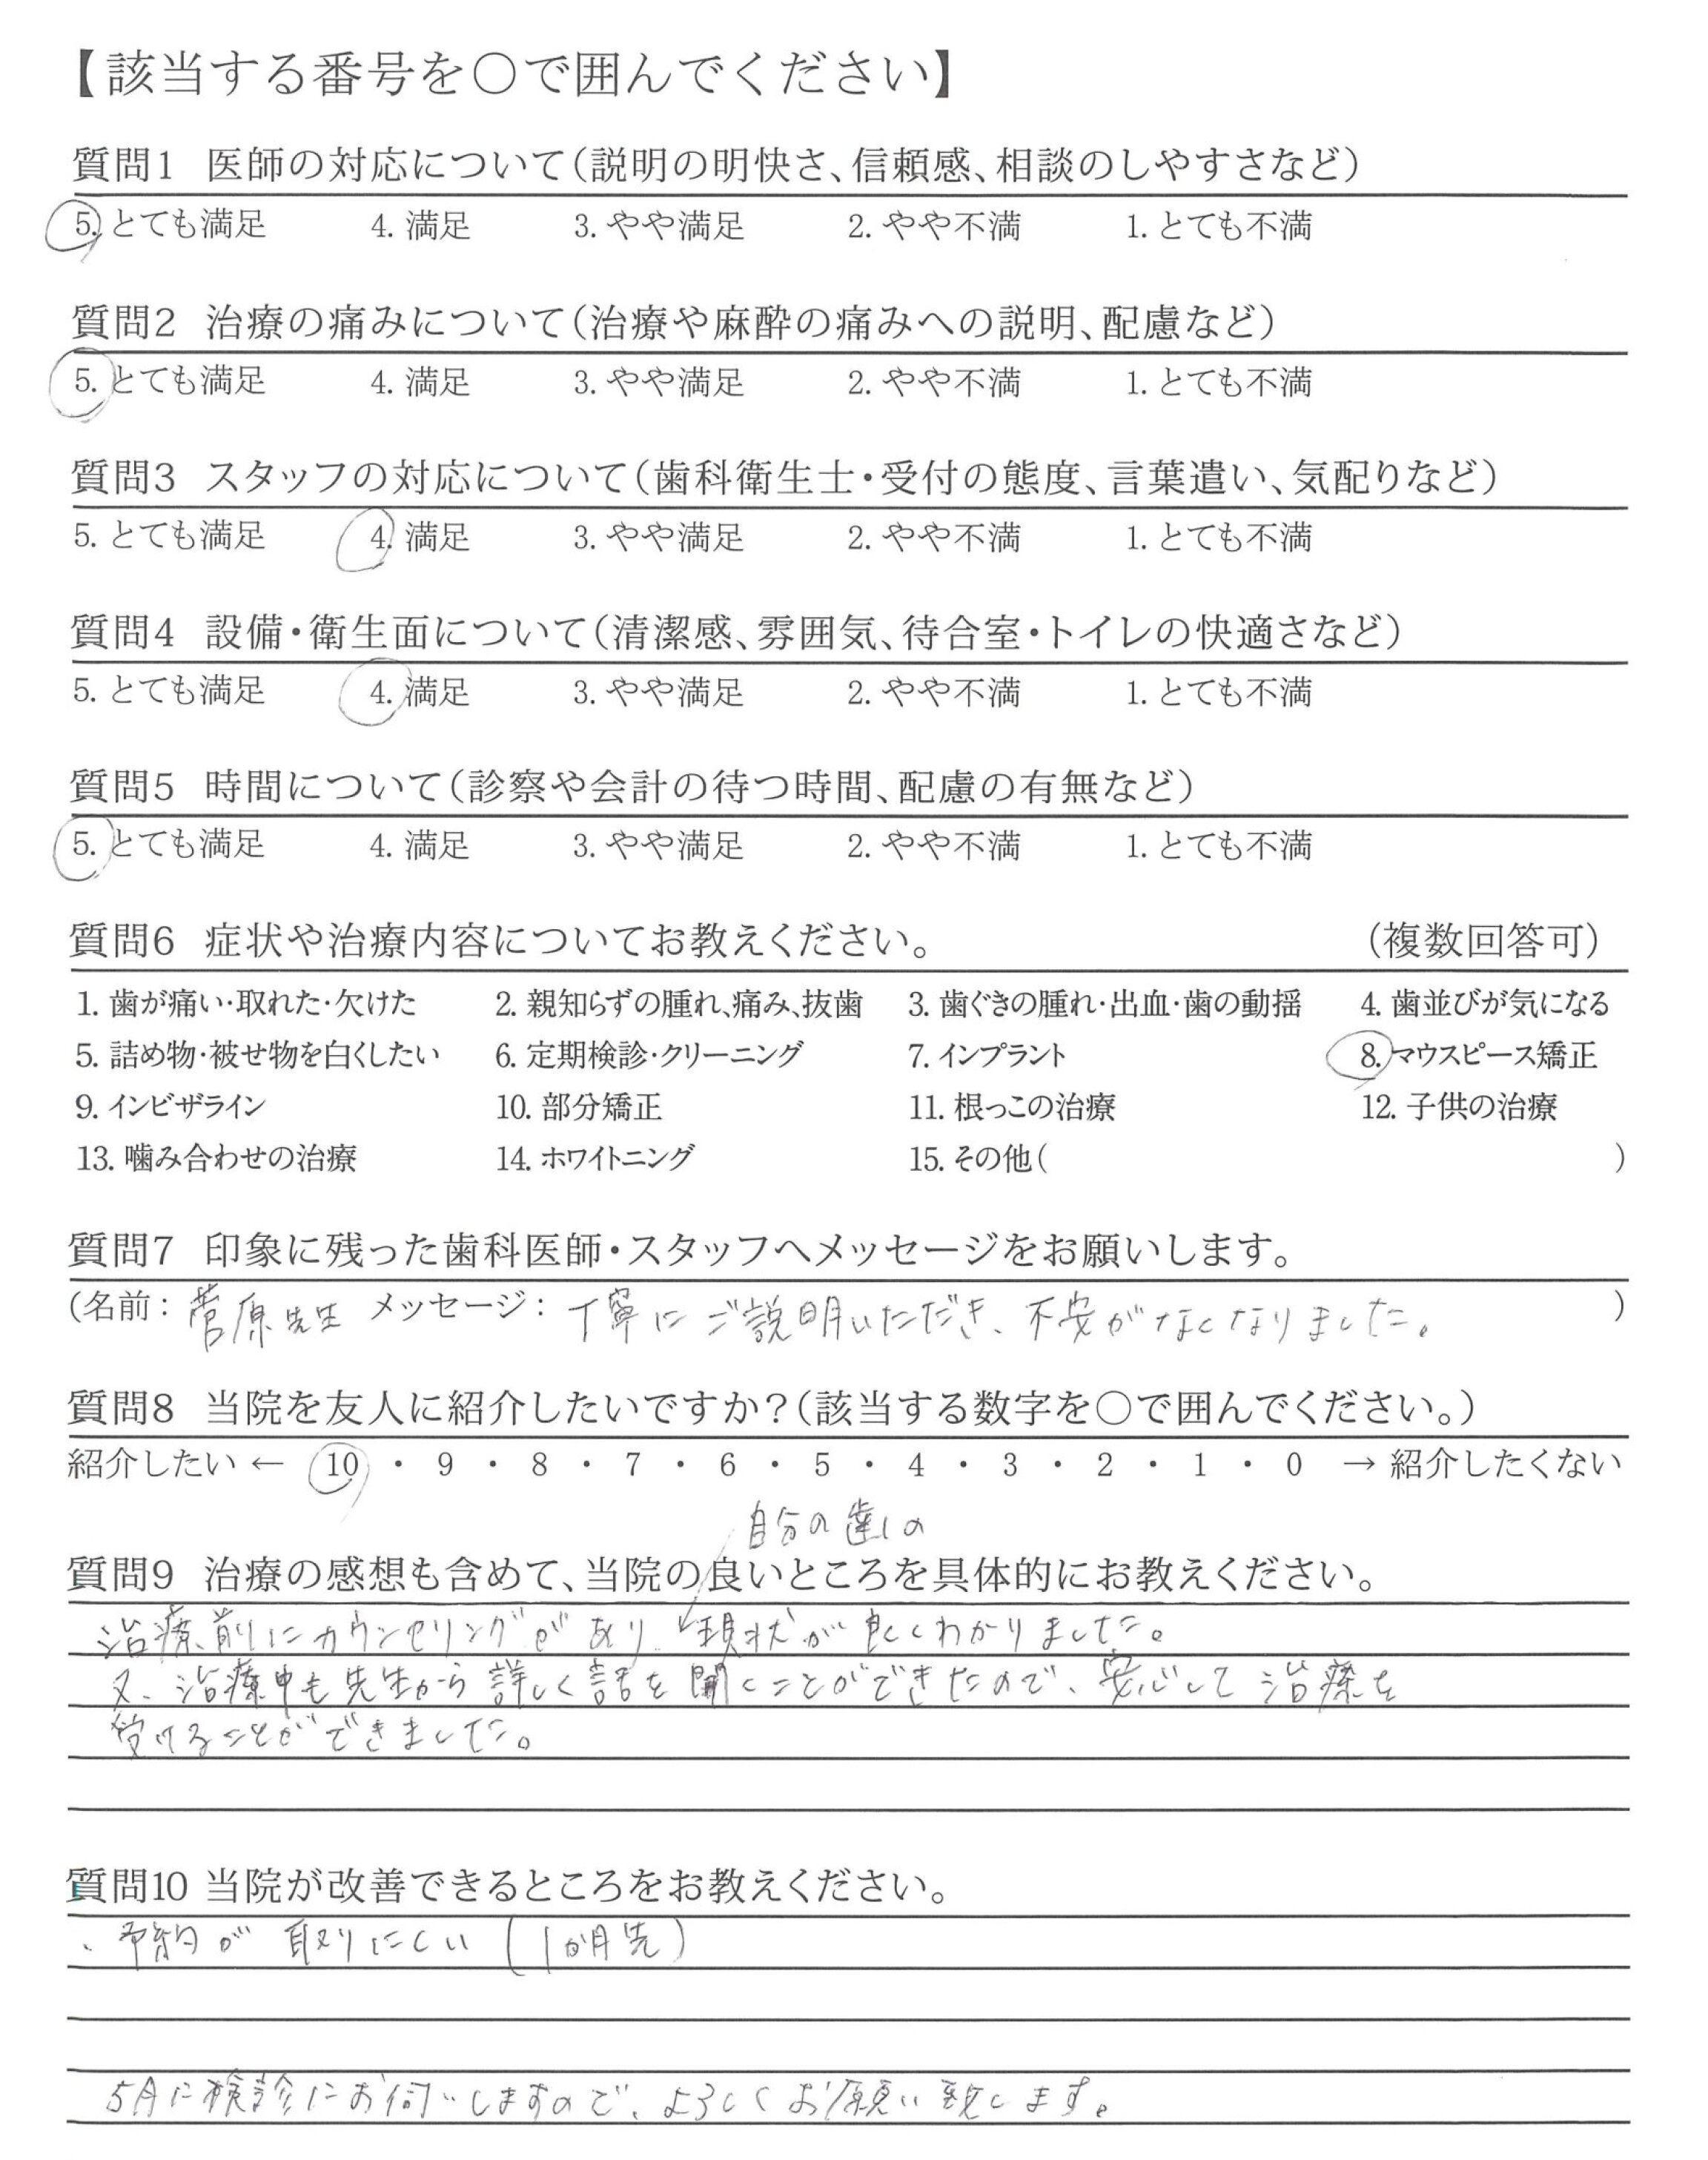 【該当する番号を○で囲んでください】
質問1 医師の対応について(説明の明快さ、信頼感、相談のしやすさなど)
5. とても満足 4. 満足 3. やや満足 2. やや不満 1. とても不満
質問2 治療の痛みについて(治療や麻酔の痛みへの説明、配慮など)
5. とても満足 4. 満足 3. やや満足 2. やや不満 1. とても不満
質問3 スタッフの対応について(歯科衛生士・受付の態度、言葉遣い、気配りなど)
5. とても満足 4. 満足 3. やや満足 2. やや不満 1. とても不満
質問4 設備・衛生面について(清潔感、雰囲気、待合室・トイレの快適さなど)
5. とても満足 4. 満足 3. やや満足 2. やや不満 1. とても不満
質問5 時間について(診察や会計の待つ時間、配慮の有無など)
5. とても満足 4. 満足 3. やや満足 2. やや不満 1. とても不満
質問6 症状や治療内容についてお教えください。 (複数回答可)
1. 歯が痛い・取れた・欠けた 2. 親知らずの腫れ、痛み、抜歯 3. 歯ぐきの腫れ・出血・歯の動揺 4. 歯並びが気になる
5. 詰め物・被せ物を白くしたい 6. 定期検診・クリーニング 7. インプラント 8. マウスピース矯正
9. インビザライン 10. 部分矯正 11. 根っこの治療 12. 子供の治療
13. 噛み合わせの治療 14. ホワイトニング 15. その他( )
質問7 印象に残った歯科医師・スタッフへメッセージをお願いします。
(名前: 菅原先生 メッセージ: 丁寧にご説明いただき、不安がなくなりました。 )
質問8 当院を友人に紹介したいですか?(該当する数字を○で囲んでください。)
紹介したい ← 10 ・ 9 ・ 8 ・ 7 ・ 6 ・ 5 ・ 4 ・ 3 ・ 2 ・ 1 ・ 0 → 紹介したくない
自分の歯の
質問9 治療の感想も含めて、当院の良いところを具体的にお教えください。
治療前にカウンセリングがあり、現状が良くわかりました。
又、治療中も先生から詳しく話を聞くことができたので、安心して治療を
受けることができました。
質問10 当院が改善できるところをお教えください。
、予約が取りにくい(1か月先)
5月に検診にお伺いしますので、よろしくお願い致します。